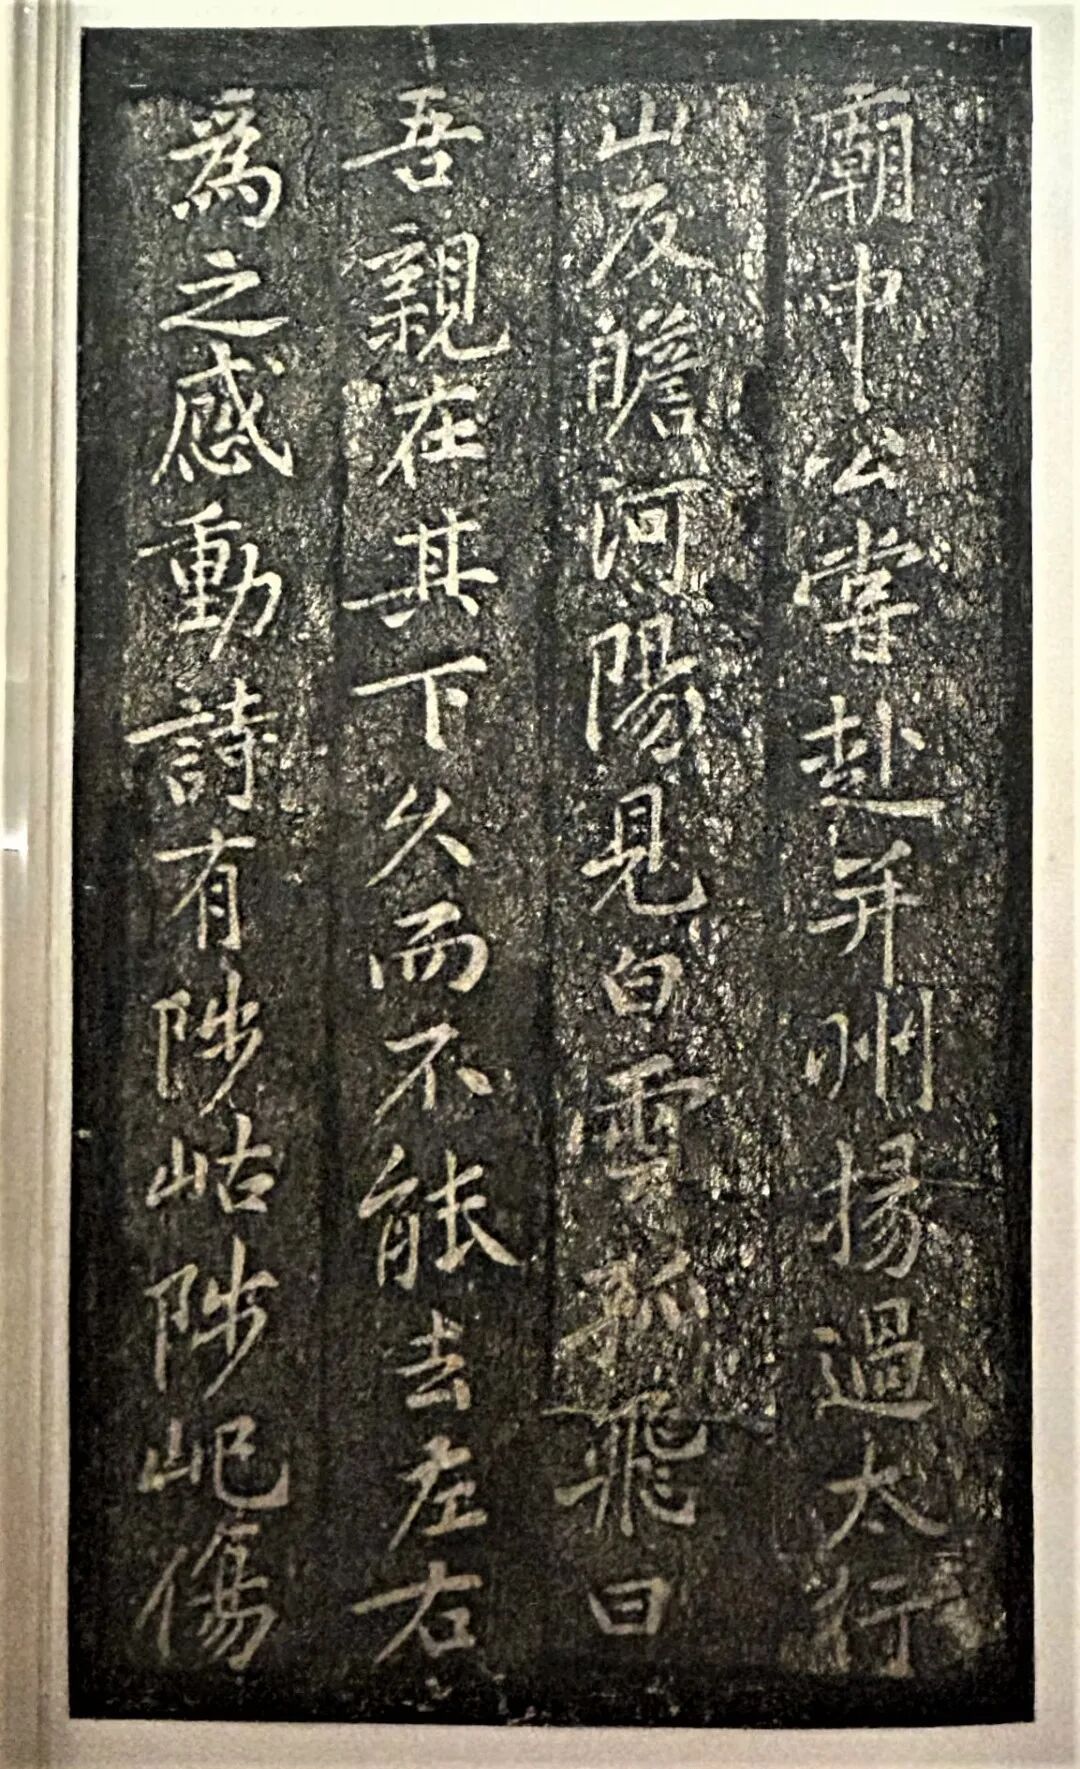 廟中公嘗赴并州掾過太行
山反瞻河陽見白雲孤飛曰
吾親在其下久而不能去左右
為之感動詩有陟岵陟屺傷